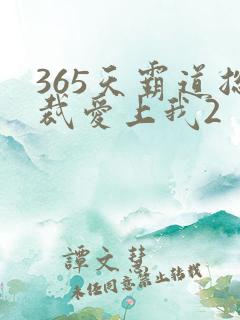 365天霸道总
裁爱上我2
譚文慧
未经同意禁止转载